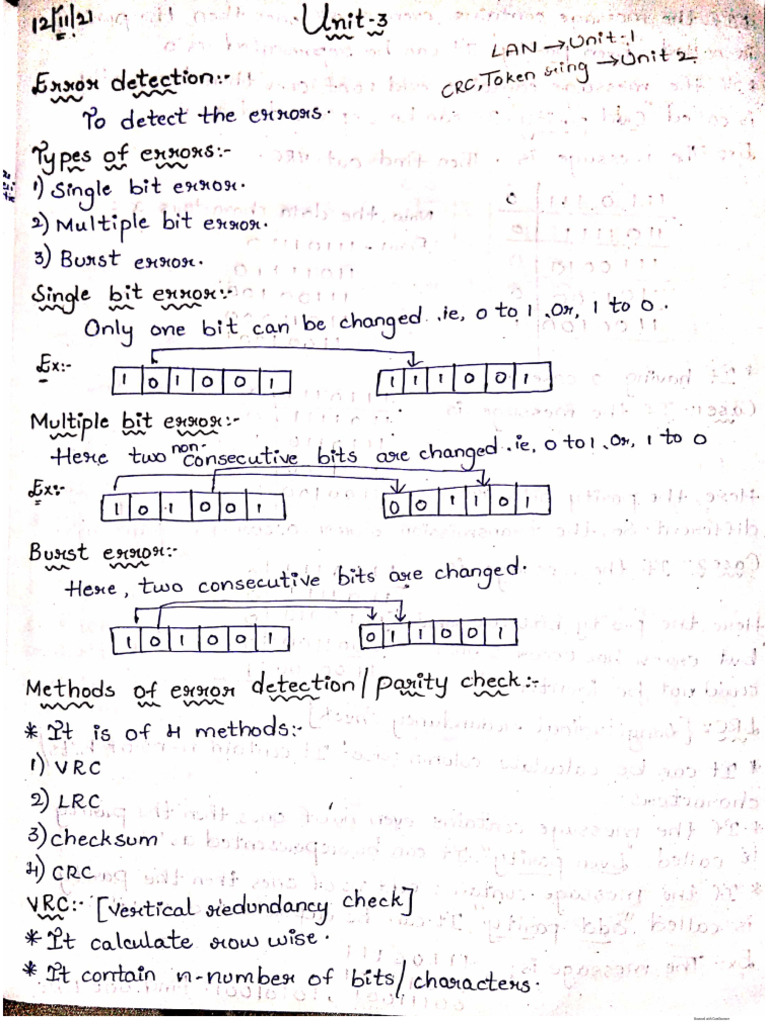 12/11/21
Unit-3
LAN → Unit-1
CRC, Token ring → Unit 2
Error detection:-
To detect the errors.
Types of errors:-
1) Single bit error.
2) Multiple bit error.
3) Burst error.
Single bit error:-
Only one bit can be changed .ie, 0 to 1 .Or, 1 to 0 .
Ex:-
1 0 1 0 0 1    1 1 1 0 0 1
Multiple bit error:-
Here two non-consecutive bits are changed .ie, 0 to 1 .Or, 1 to 0
Ex:-
1 0 1 0 0 1    0 0 1 1 0 1
Burst error:-
Here, two consecutive bits are changed.
1 0 1 0 0 1    0 1 1 0 0 1
Methods of error detection / parity check:-
* It is of 4 methods:-
1) VRC
2) LRC
3) checksum
4) CRC
VRC:- [Vertical redundancy check]
* It calculate row wise.
* It contain n-number of bits/characters.